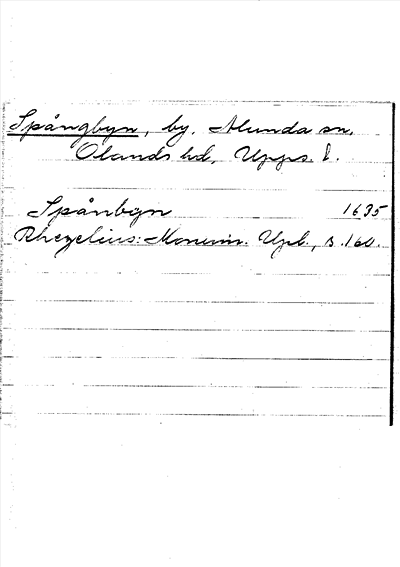 Spångbyn, by, Alunda sn,
Olands hd, Upps. l.
Spånbyn 1635
Rhezelius: Monum. Upl., s. 160.